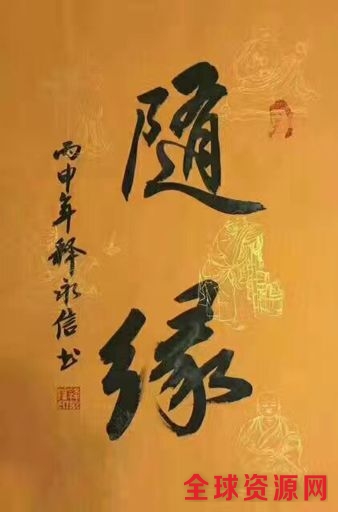 随缘
丙申年释永信书
全球资源网